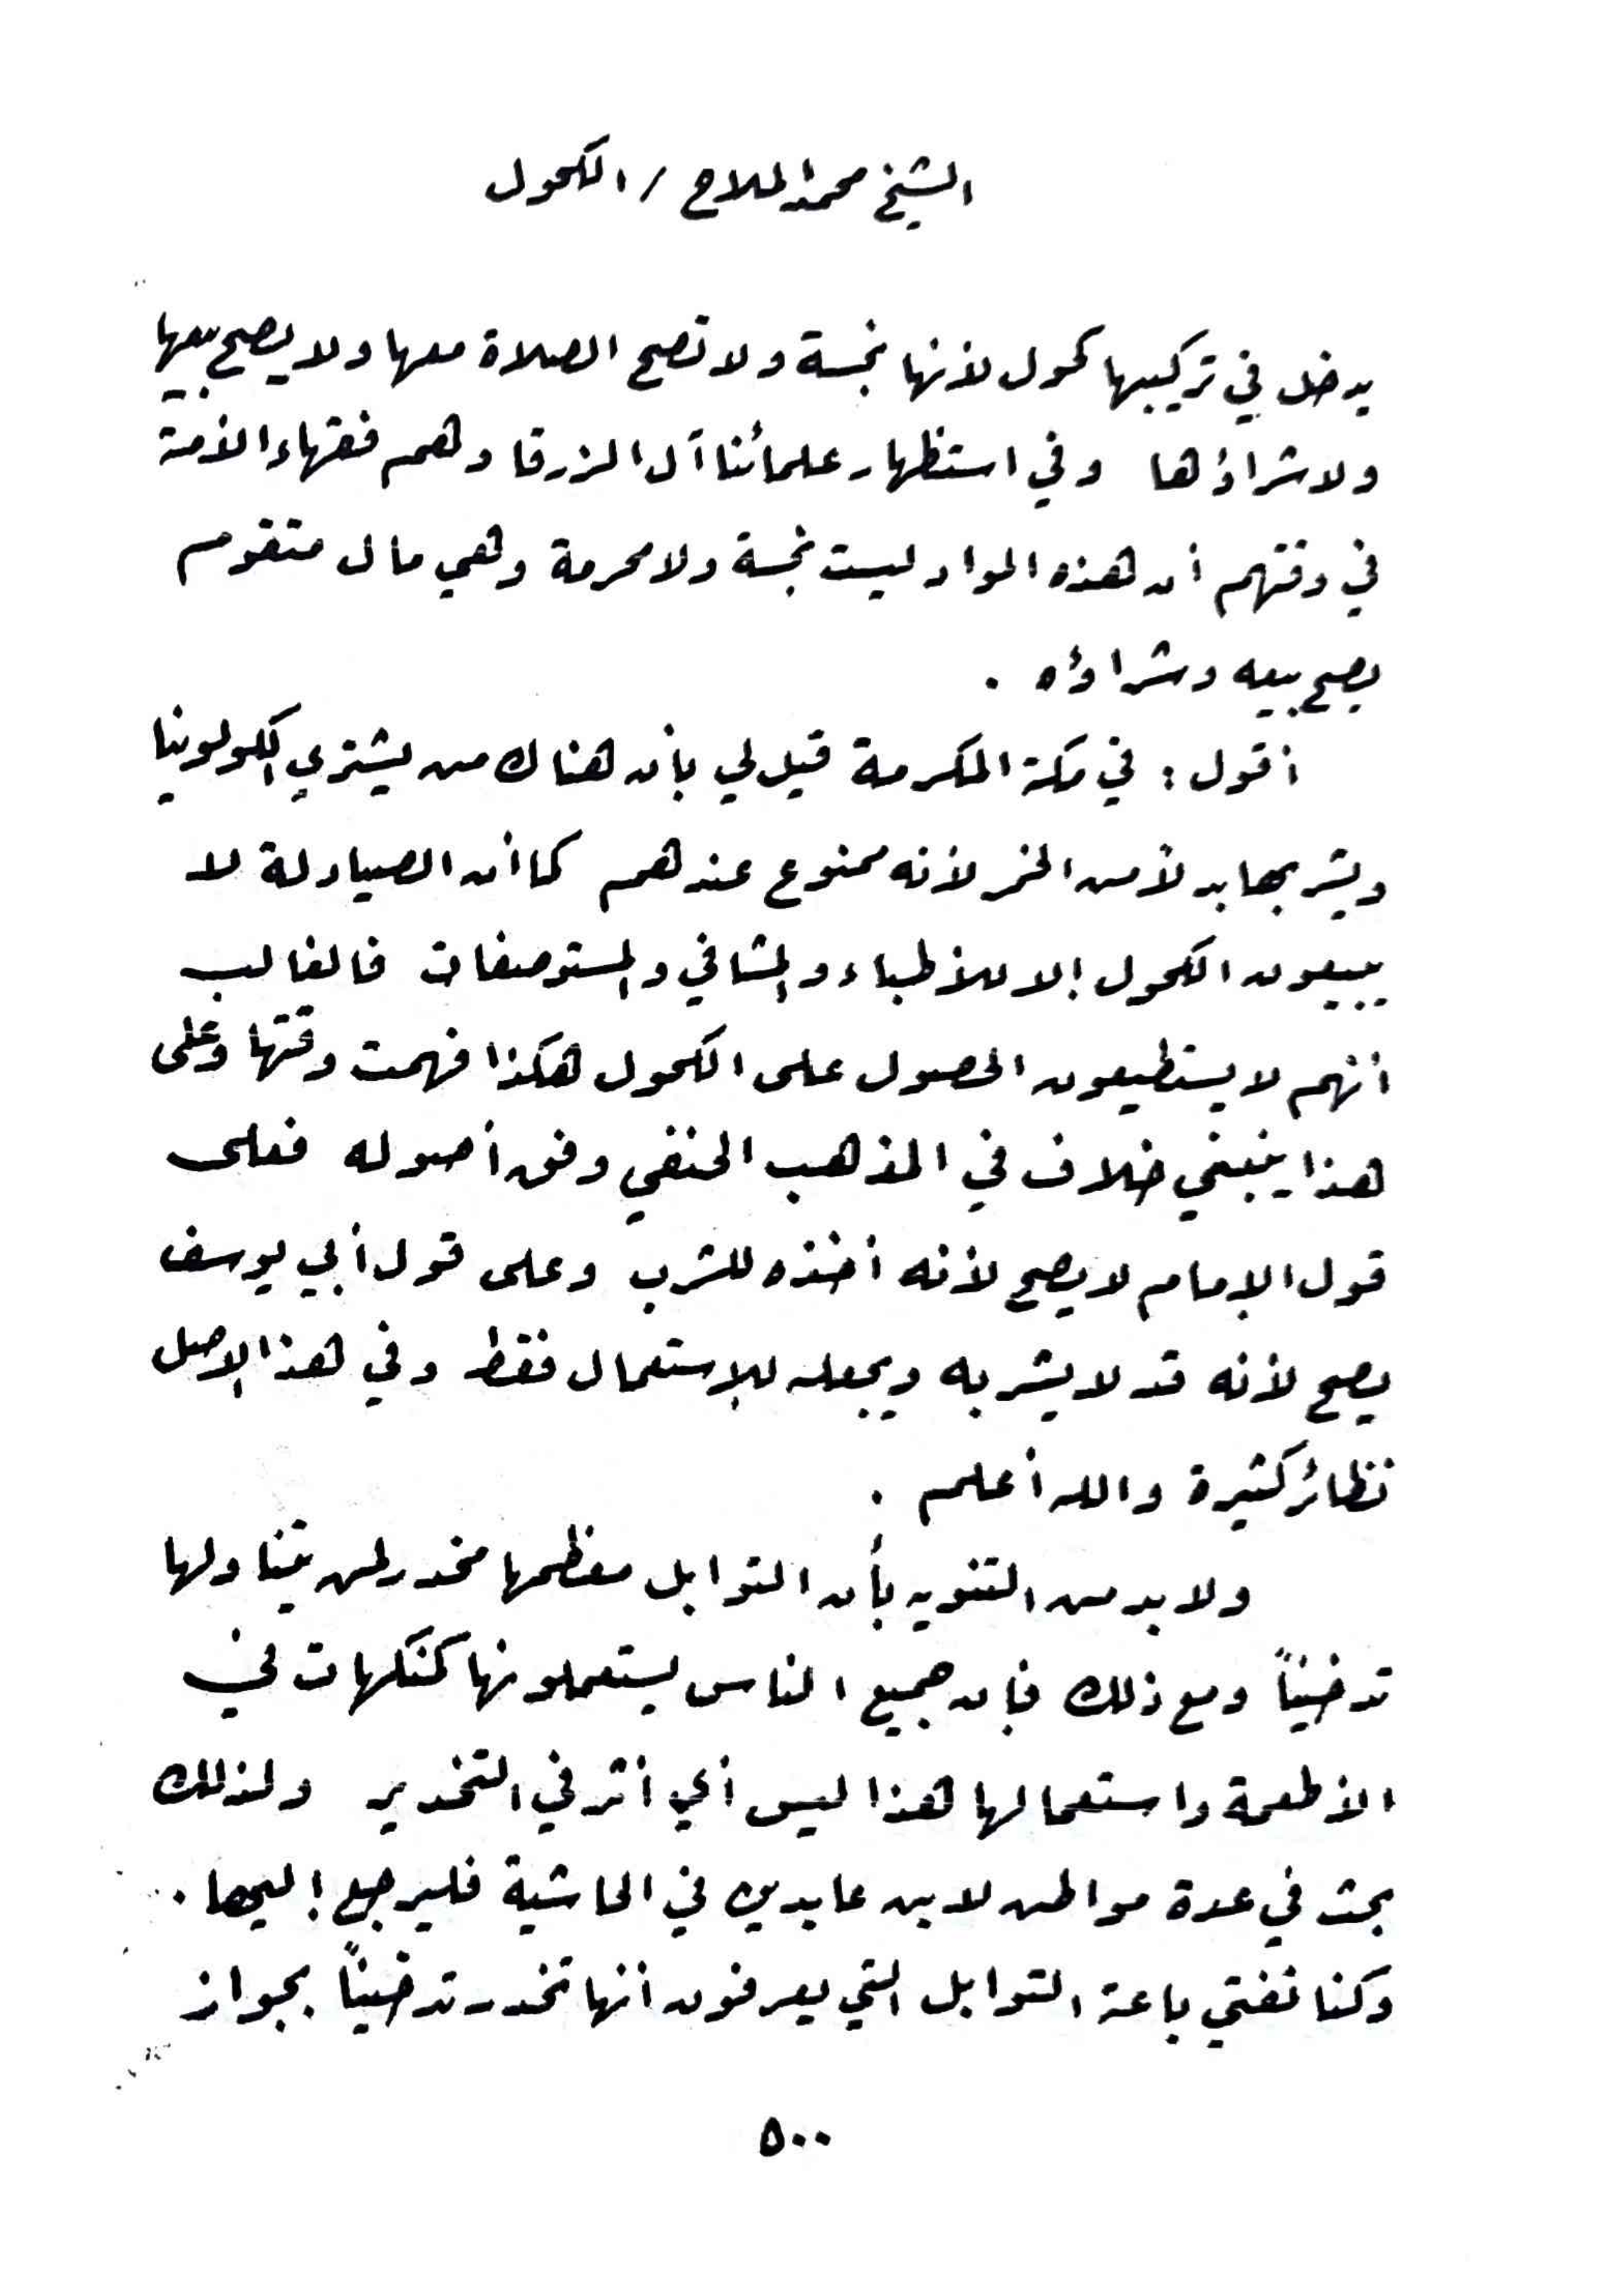 الشيخ محمد الملاح / الكحول
يدخل في تركيبها كحول لأنها نجسة ولا تصح الصلاة معها ولا يصح بيعها
ولا شراؤها وفي استظهار علمائنا آل الزرقا وهم فقهاء الأمة
في وقتهم أن هذه المواد ليست نجسة ولا محرمة وهي مال متقوم
يصح بيعه وشراؤه .
أقول : في مكة المكرمة قيل لي بأن هناك من يشتري الكولونيا
ويشربها بدلاً من الخمر لأنه ممنوع عندهم كما أن الصيادلة لا
يبيعون الكحول إلا للأطباء والمشافي والمستوصفات فالغالب
أنهم لا يستطيعون الحصول على الكحول هكذا فهمت وقتها وعلى
هذا ينبني خلاف في المذهب الحنفي وفق أصوله فعلى
قول الإمام لا يصح لأنه أخذه للشرب وعلى قول أبي يوسف
يصح لأنه قد لا يشربه ويجعله للإستعمال فقط وفي هذا الأصل
نظائر كثيرة والله أعلم .
ولا بد من التنويه بأن التوابل معظمها مخدر لمن يتناولها
تدخيناً ومع ذلك فإن جميع الناس يستعملونها كمنكهات في
الأطعمة واستعمالها هذا ليس أي أثر في التخدير ولذلك
بحث في عدة مواطن لابن عابدين في الحاشية فليرجع إليها .
وكنا نفتي باعة التوابل التي يعرفون أنها تخدر تدخيناً بجواز
٥٠٠